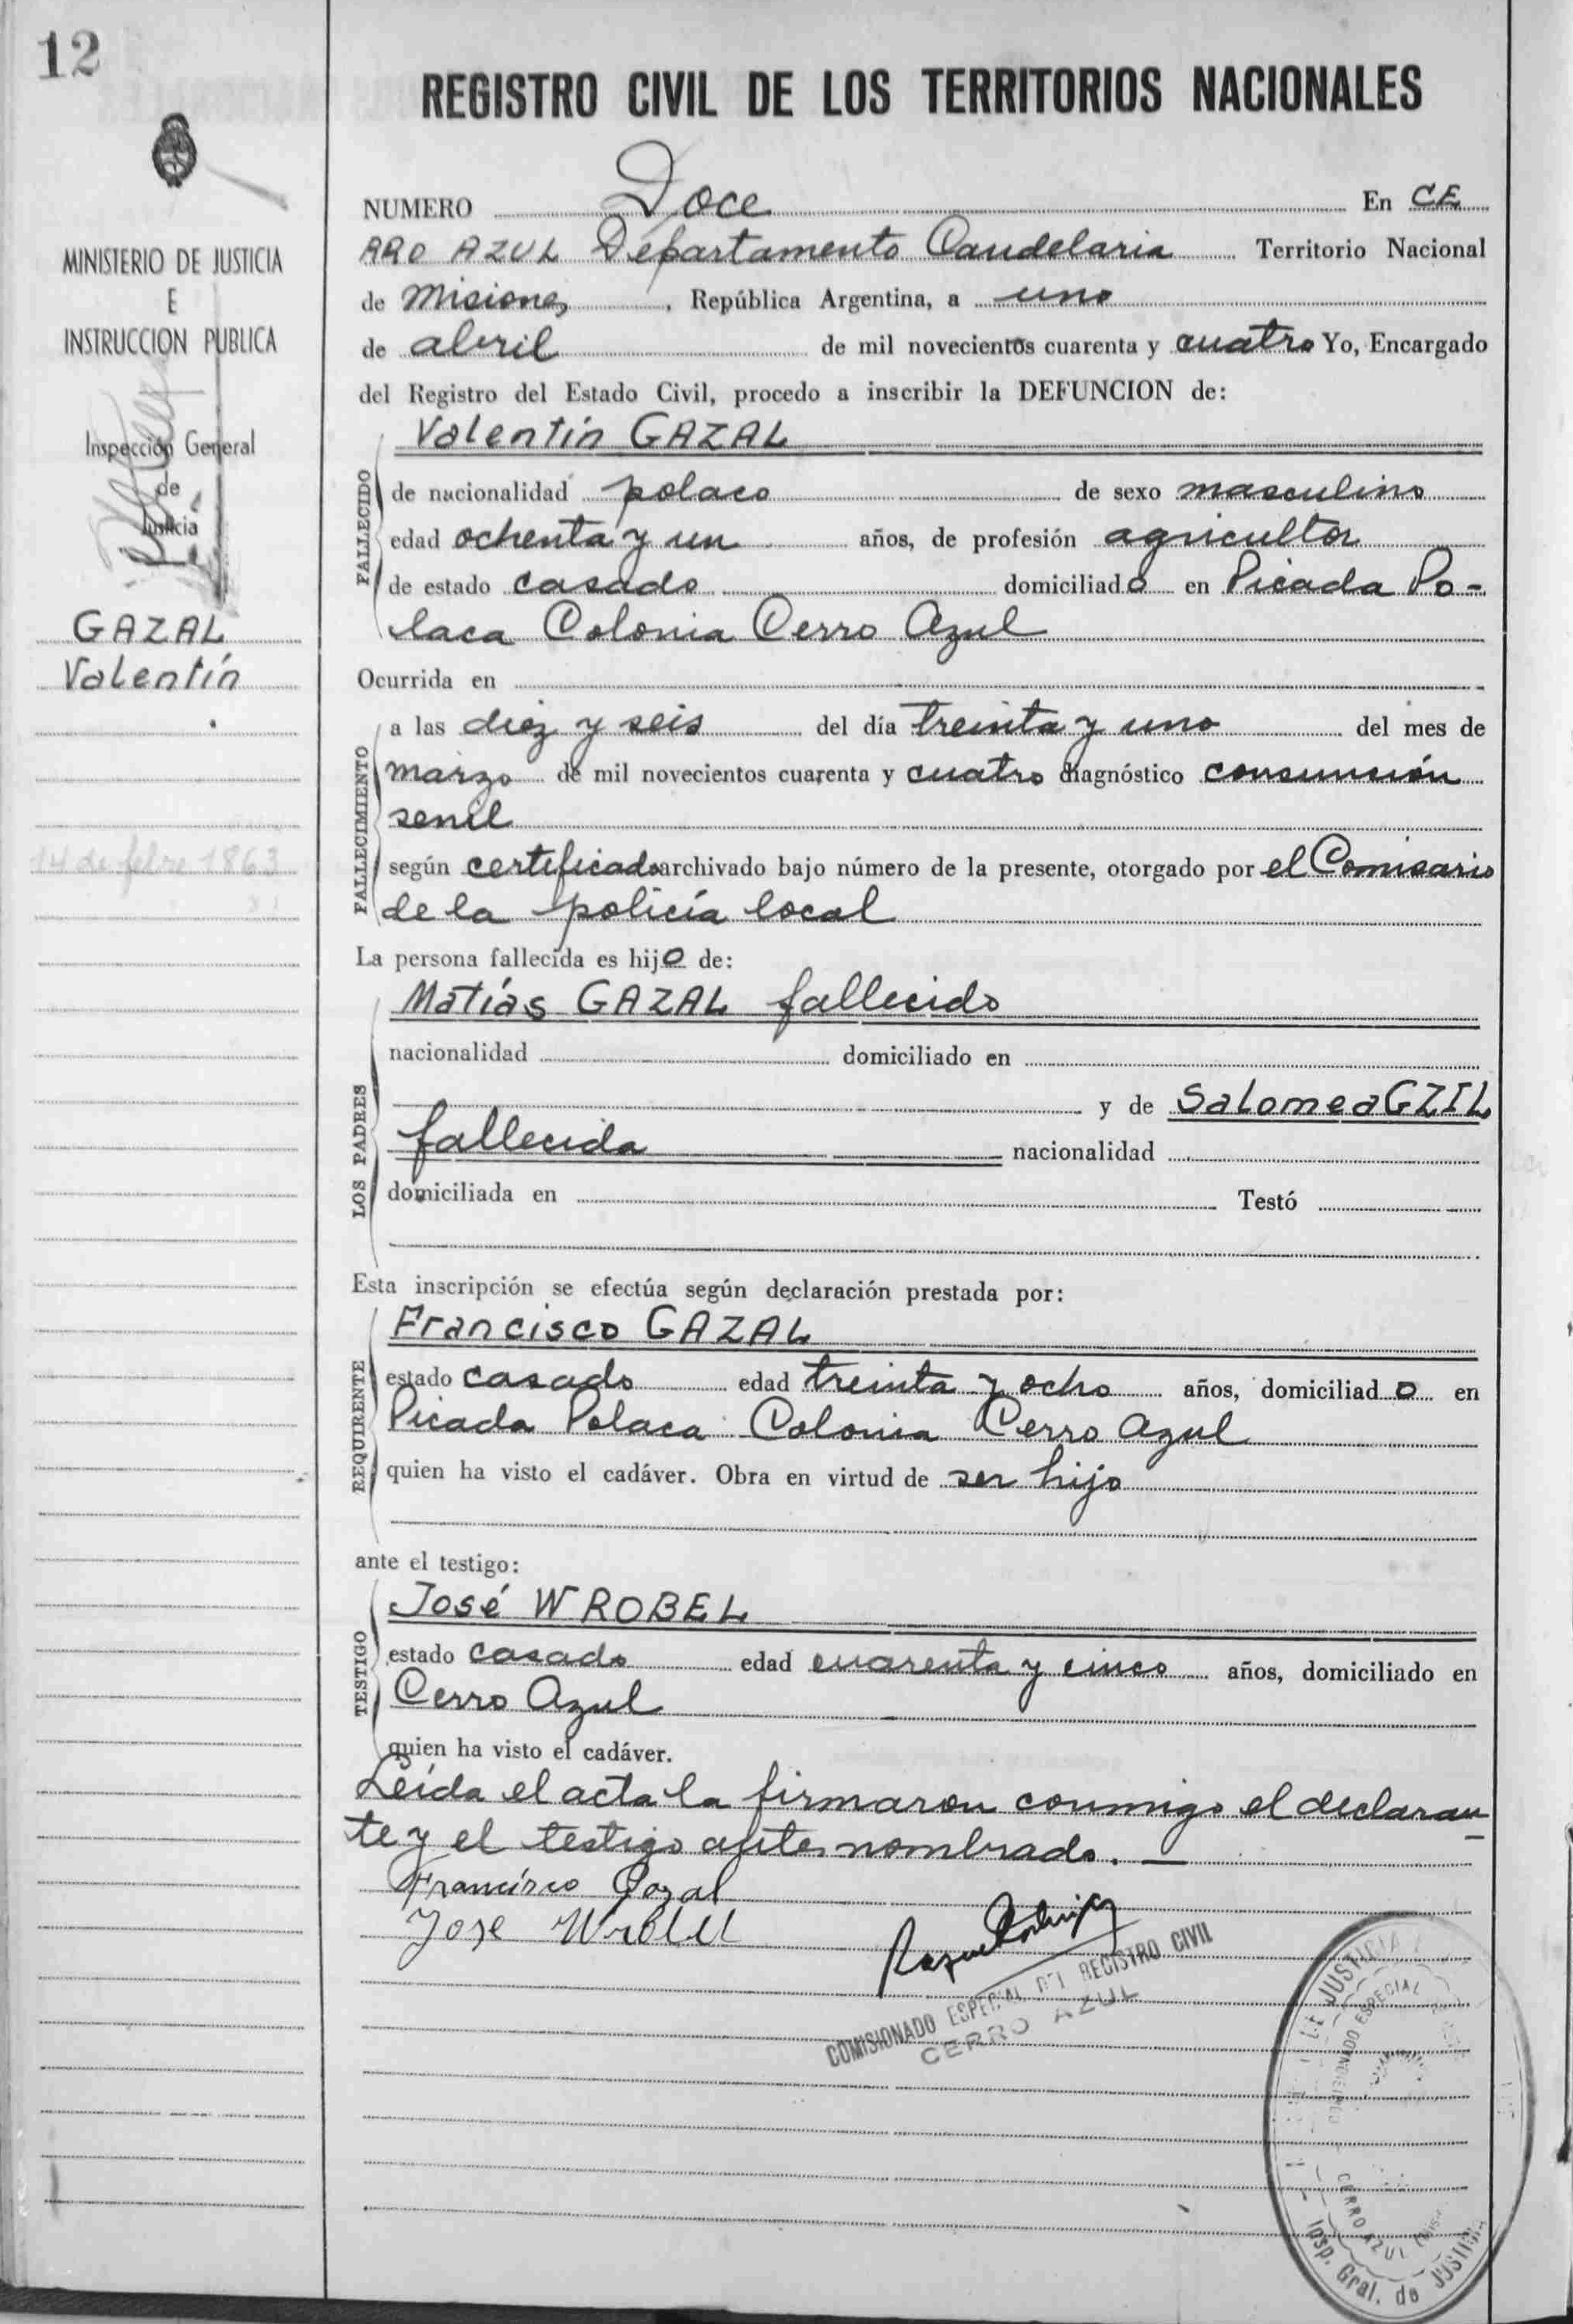 12
REGISTRO CIVIL DE LOS TERRITORIOS NACIONALES
MINISTERIO DE JUSTICIA
E
INSTRUCCION PUBLICA
Inspección General
de
Justicia
GAZAL
Valentín
14 de febre 1863
NUMERO Doce En CE
RRO AZUL Departamento Candelaria Territorio Nacional
de Misiones, República Argentina, a uno
de abril de mil novecientos cuarenta y cuatro Yo, Encargado
del Registro del Estado Civil, procedo a inscribir la DEFUNCION de:
Valentín GAZAL
FALLECIDO
de nacionalidad polaco de sexo masculino
edad ochenta y un años, de profesión agricultor
de estado casado domiciliado en Picada Po-
laca Colonia Cerro Azul
Ocurrida en
FALLECIMIENTO
a las diez y seis del día treinta y uno del mes de
marzo de mil novecientos cuarenta y cuatro diagnóstico consunción
senil
según certificado archivado bajo número de la presente, otorgado por el Comisario
de la policía local
La persona fallecida es hijo de:
LOS PADRES
Matías GAZAL fallecido
nacionalidad domiciliado en
y de Salomea GZIL
fallecida nacionalidad
domiciliada en Testó
Esta inscripción se efectúa según declaración prestada por:
REQUIRENTE
Francisco GAZAL
estado casado edad treinta y ocho años, domiciliado en
Picada Polaca Colonia Cerro Azul
quien ha visto el cadáver. Obra en virtud de ser hijo
ante el testigo:
TESTIGO
José WROBEL
estado casado edad cuarenta y cinco años, domiciliado en
Cerro Azul
quien ha visto el cadáver.
Leída el acta la firmaron conmigo el declaran
te y el testigo antes nombrado. —
Francisco Gazal
Jose Wrobel
COMISIONADO ESPECIAL DEL REGISTRO CIVIL
CERRO AZUL
DE JUSTICIA
COMISIONADO ESPECIAL
CERRO AZUL
Insp. Gral. de JUSTICIA